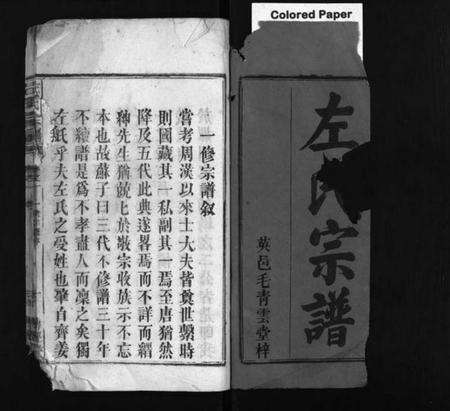 Colored Paper
左氏宗譜
英邑毛青雲堂梓
一修宗譜敘
嘗考周漢以來士大夫皆奠世繫時
則國藏其一私副其一焉至唐猶然
降及五代此典遂畧焉而不詳而縉
紳先生猶兢兢於敬宗收族示不忘
本也故蘇子曰三代不修譜三十年
不續譜是為不孝盡人而凜之矣獨
左氏乎夫左氏之受姓也肇自齊姜